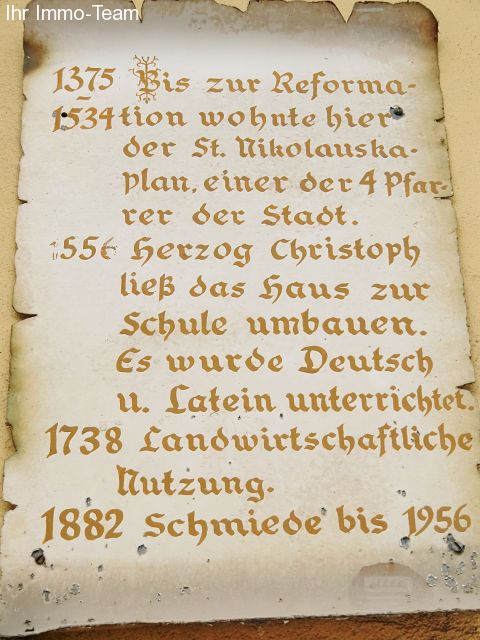 Ihr Immo-Team
1375 Bis zur Reforma-
1534 tion wohnte hier
der St. Nikolauska-
plan, einer der 4 Pfar-
rer der Stadt.
1556 Herzog Christoph
ließ das Haus zur
Schule umbauen.
Es wurde Deutsch
u. Latein unterrichtet.
1738 Landwirtschaftliche
Nutzung.
1882 Schmiede bis 1956